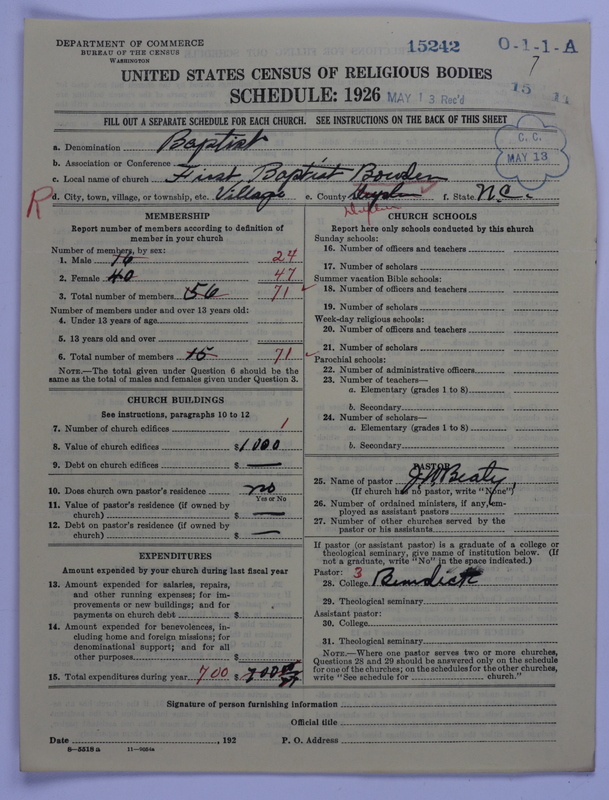 DEPARTMENT OF COMMERCE
BUREAU OF THE CENSUS
WASHINGTON
15242 0-1-1-A
7
UNITED STATES CENSUS OF RELIGIOUS BODIES
SCHEDULE: 1926 MAY 13 Rec'd 15 11
FILL OUT A SEPARATE SCHEDULE FOR EACH CHURCH. SEE INSTRUCTIONS ON THE BACK OF THIS SHEET
C. C.
MAY 13
a. Denomination Baptist
b. Association or Conference
c. Local name of church First Baptist Bowden
R d. City, town, village, or township, etc. Village e. County Duplin f. State N.C.
Duplin
MEMBERSHIP
Report number of members according to definition of
member in your church
Number of members, by sex:
1. Male 16 24
2. Female 40 47
3. Total number of members 56 71
Number of members under and over 13 years old:
4. Under 13 years of age
5. 13 years old and over
6. Total number of members 15 71
NOTE.—The total given under Question 6 should be the
same as the total of males and females given under Question 3.
CHURCH BUILDINGS
See instructions, paragraphs 10 to 12
7. Number of church edifices 1
8. Value of church edifices $1000
9. Debt on church edifices $ —
10. Does church own pastor's residence no
Yes or No
11. Value of pastor's residence (if owned by
church) $ —
12. Debt on pastor's residence (if owned by
church) $ —
EXPENDITURES
Amount expended by your church during last fiscal year
13. Amount expended for salaries, repairs,
and other running expenses; for im-
provements or new buildings; and for
payments on church debt $
14. Amount expended for benevolences, in-
cluding home and foreign missions; for
denominational support; and for all
other purposes $
15. Total expenditures during year 700 $ 700
CHURCH SCHOOLS
Report here only schools conducted by this church
Sunday schools:
16. Number of officers and teachers
17. Number of scholars
Summer vacation Bible schools:
18. Number of officers and teachers
19. Number of scholars
Week-day religious schools:
20. Number of officers and teachers
21. Number of scholars
Parochial schools:
22. Number of administrative officers
23. Number of teachers—
a. Elementary (grades 1 to 8)
b. Secondary
24. Number of scholars—
a. Elementary (grades 1 to 8)
b. Secondary
PASTOR
25. Name of pastor J W Beaty
(If church has no pastor, write "None")
26. Number of ordained ministers, if any, em-
ployed as assistant pastors
27. Number of other churches served by the
pastor or his assistants
If pastor (or assistant pastor) is a graduate of a college or
theological seminary, give name of institution below. (If
not a graduate, write "No" in the space indicated.)
Pastor: 3
28. College Benedict
29. Theological seminary
Assistant pastor:
30. College
31. Theological seminary
NOTE.—Where one pastor serves two or more churches,
Questions 28 and 29 should be answered only on the schedule
for one of the churches; on the schedules for the other churches,
write "See schedule for church."
Signature of person furnishing information
Official title
Date , 192 P. O. Address
8—5518 a 11—9054a